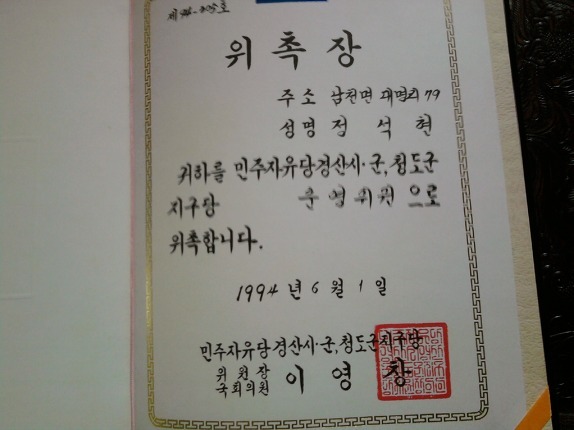 제94-205호
위촉장
주소 남천면 대명리 79
성명 정 석 현
귀하를 민주자유당경산시·군,청도군
지구당 운영위원 으로
위촉합니다.
1994년 6월 1일
민주자유당경산시·군,청도군지구당
위원장
국회의원 이영창